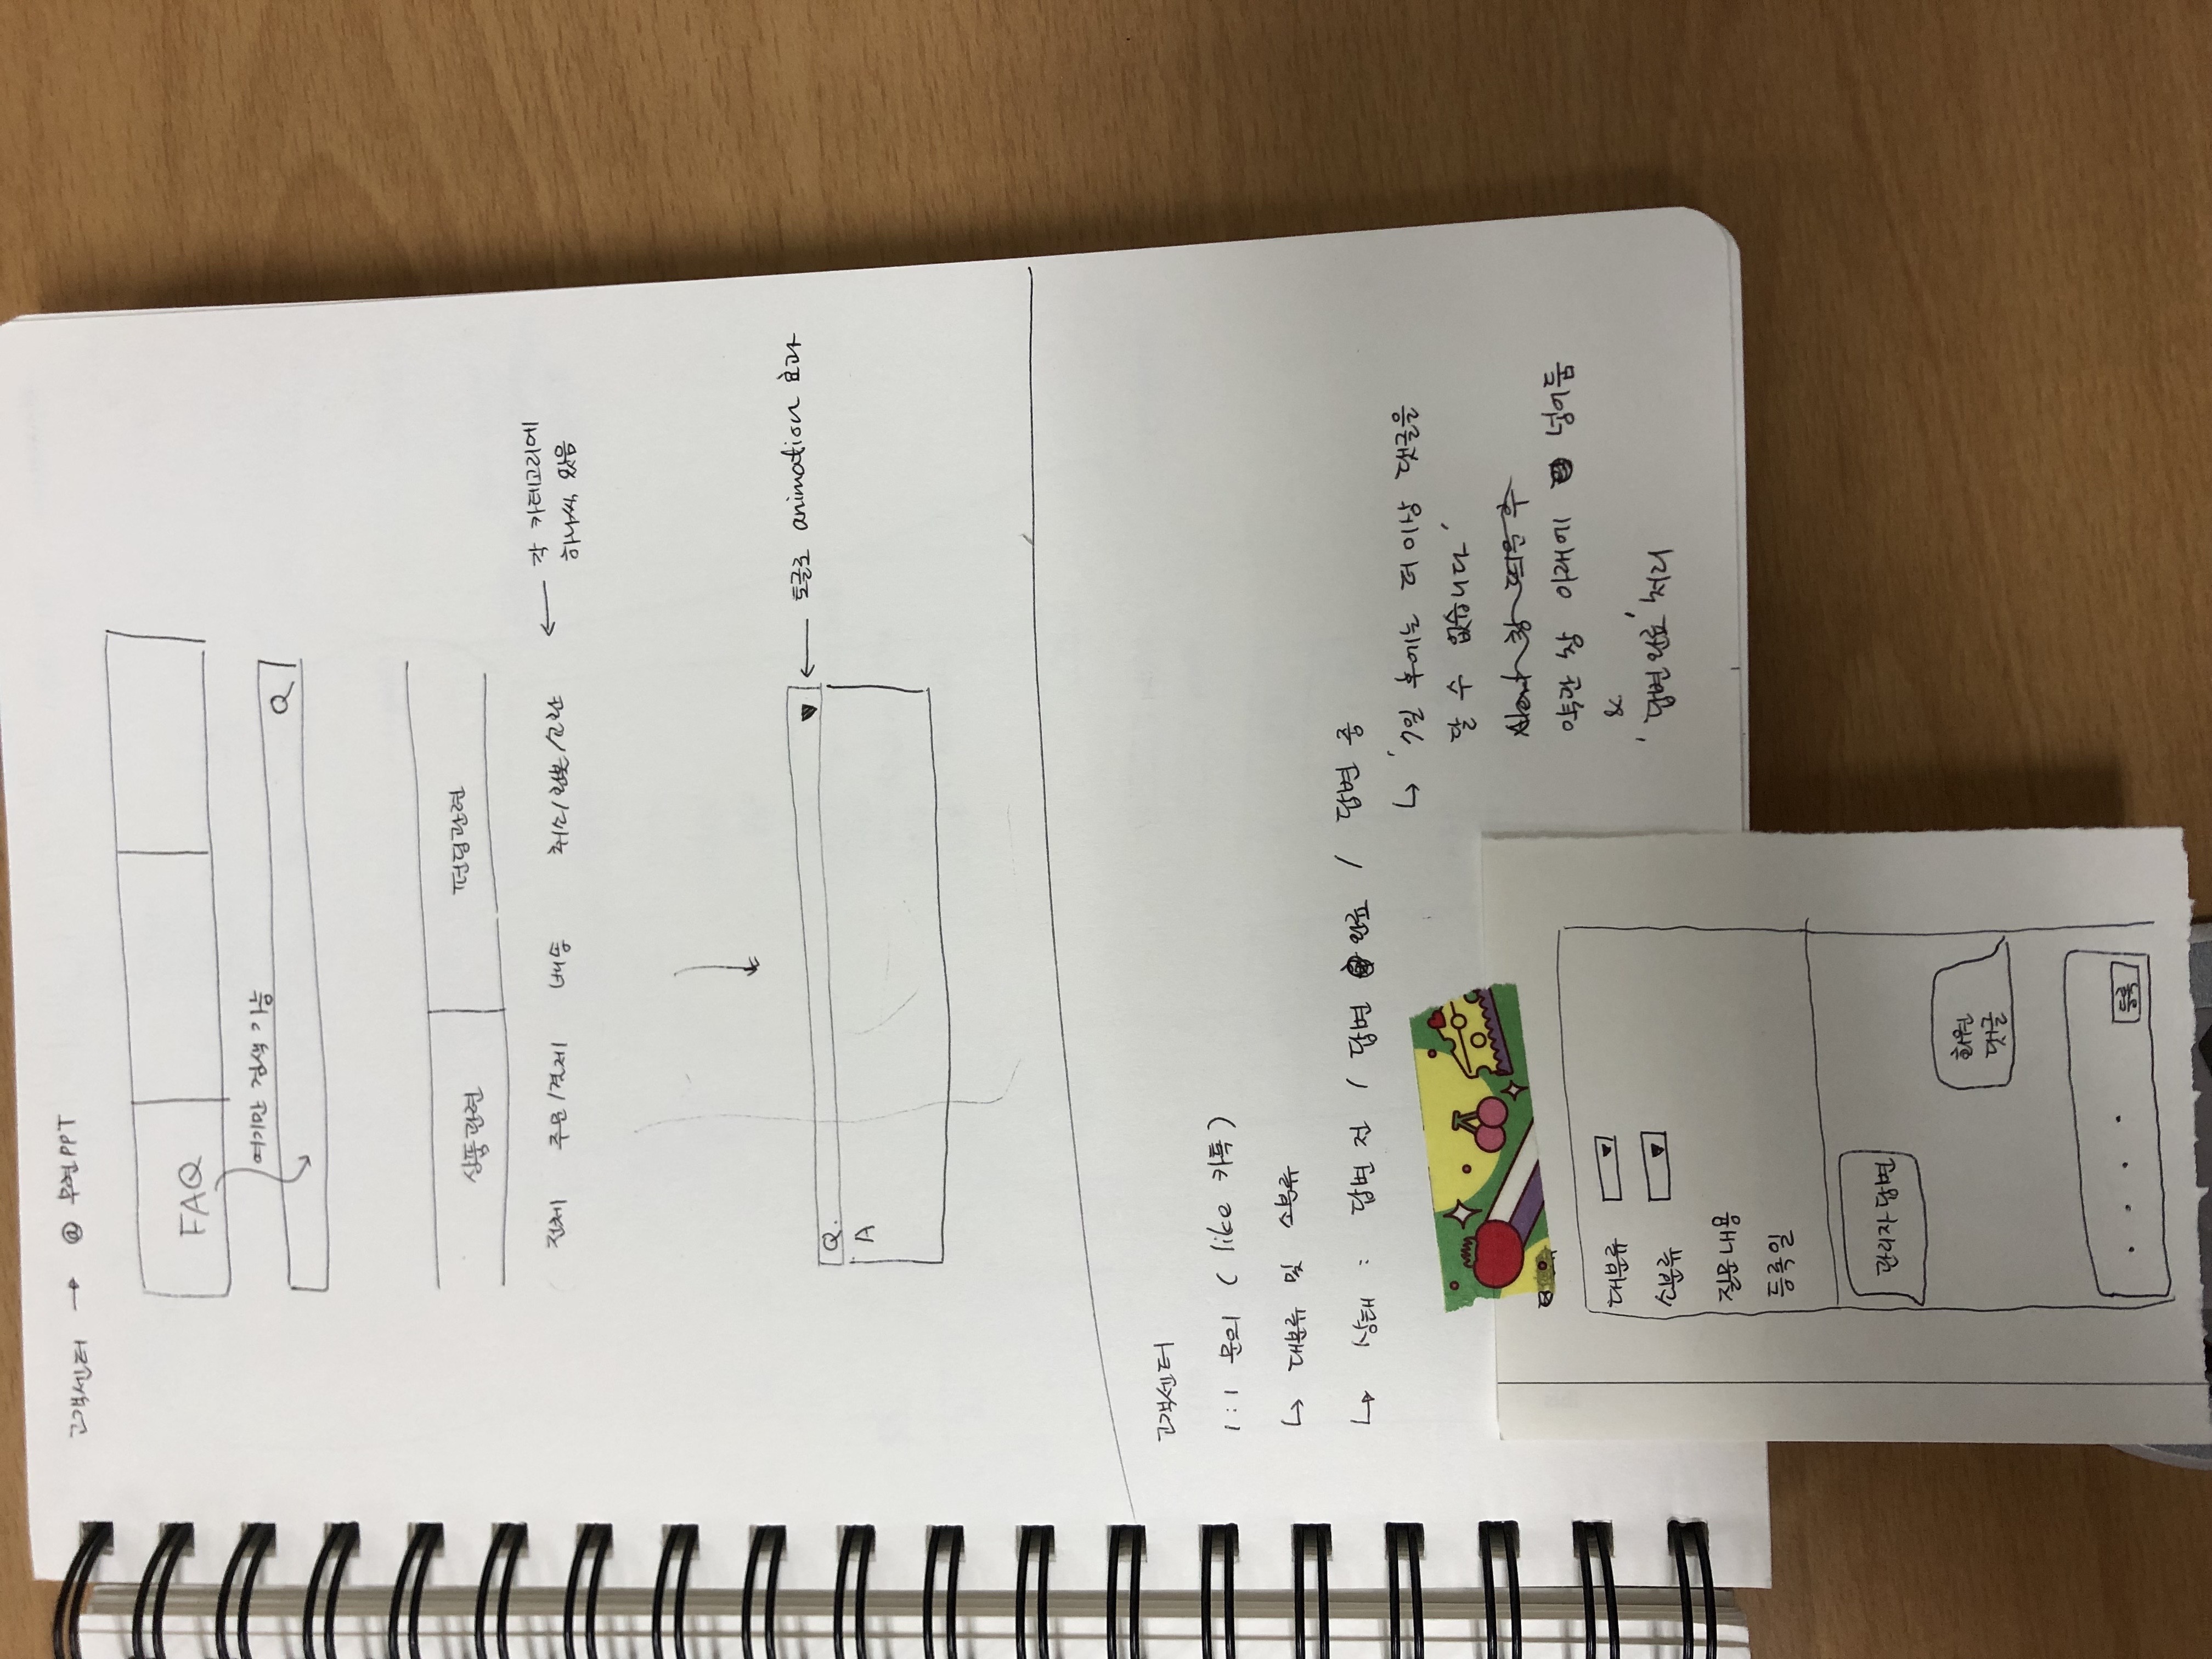 고객센터 → @ 무현PPT
FAQ
여기만 검색 가능
Q
상품관련 펀딩관련
전체 주문/결제 배송 취소/환불/교환 ← 각 카테고리에
하나씩 있음
← 토글로 animation 효과
Q.
A
고객센터
1:1 문의 ( like 카톡 )
↳ 대분류 및 소분류
↳ 상태 : 답변 전 / 답변 완료 / 답변 중
↳ '7일 후에는 더 이상 댓글을
달 수 없습니다'
Alert 창 띄운 후
약관 창 아래에 넣어둠
&
'답변완료' 처리
대분류
소분류
질문내용
등록일
관리자 답변
회원
댓글
. . . . 등록